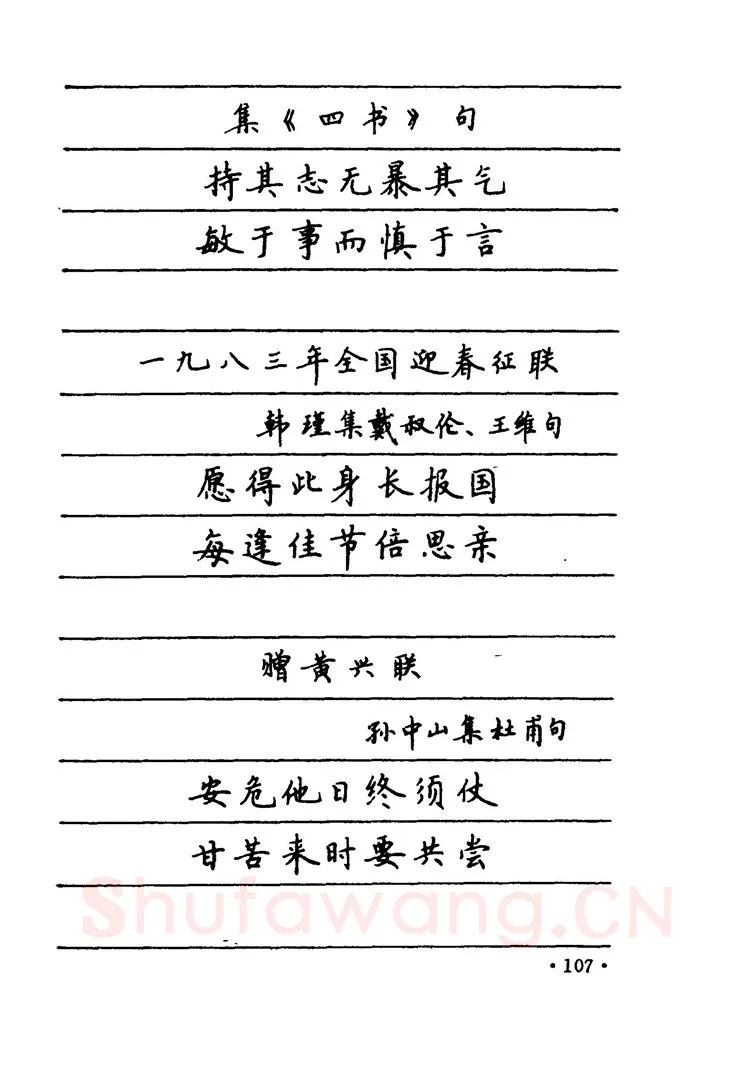 集《四书》句
持其志无暴其气
敏于事而慎于言
一九八三年全国迎春征联
韩瑾集戴叔伦、王维句
愿得此身长报国
每逢佳节倍思亲
赠黄兴联
孙中山集杜甫句
安危他日终须仗
甘苦来时要共尝
Shufawang.CN
·107·